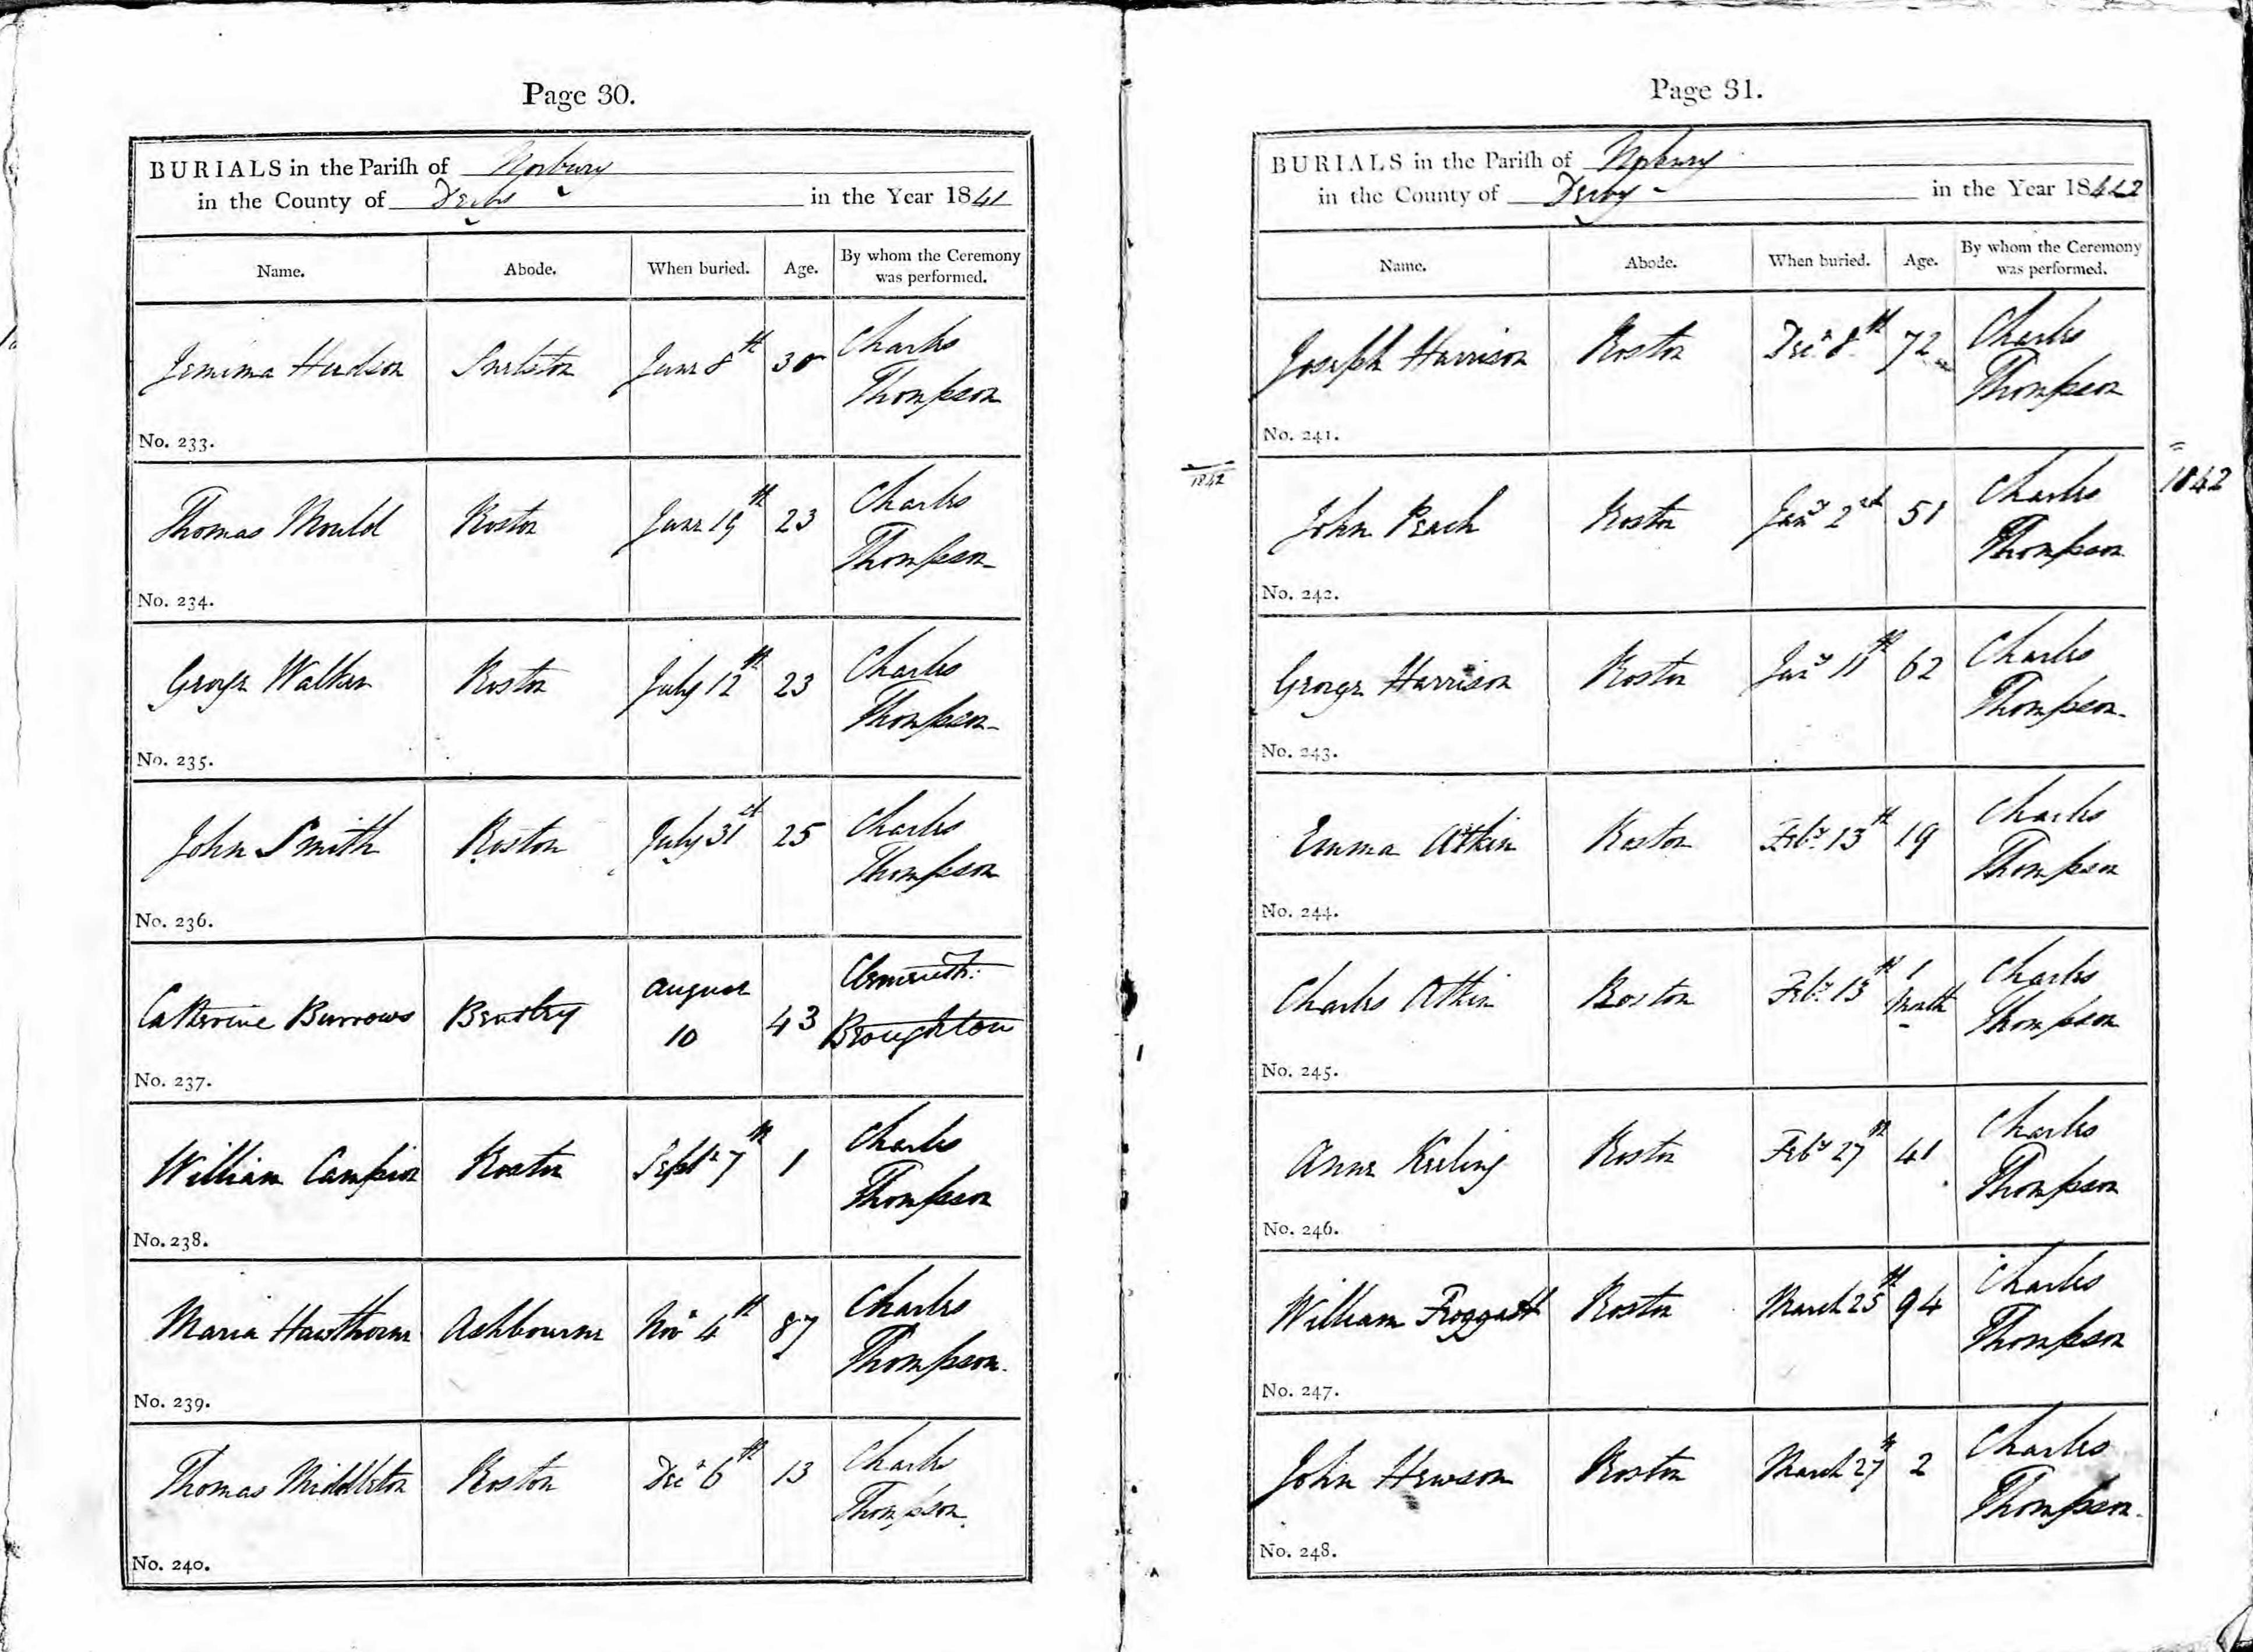 Page 30.
BURIALS in the Parish of Norbury
in the County of Derby in the Year 1841
Name. Abode. When buried. Age. By whom the Ceremony was performed.
Jemima Hudson Snelston June 8th 30 Charles Thompson
No. 233.
Thomas Mould Roston June 19th 23 Charles Thompson
No. 234.
George Walker Roston July 12th 23 Charles Thompson
No. 235.
John Smith Roston July 31st 25 Charles Thompson
No. 236.
Catherine Burrows Bentley August 10 43 Clement F. Broughton
No. 237.
William Campion Roston Septr 7th 1 Charles Thompson
No. 238.
Maria Hawthorne Ashbourne Novr 4th 87 Charles Thompson.
No. 239.
Thomas Middleton Roston Decr 6th 13 Charles Thompson.
No. 240.
Page 31.
BURIALS in the Parish of Norbury
in the County of Derby in the Year 1841 2
Name. Abode. When buried. Age. By whom the Ceremony was performed.
Joseph Harrison Roston Decr 8th 72 Charles Thompson
No. 241.
1842
1842
John Peach Roston Jany 2nd 51 Charles Thompson
No. 242.
George Harrison Roston Jany 11th 62 Charles Thompson.
No. 243.
Emma Atkin Roston Feby 13th 19 Charles Thompson
No. 244.
Charles Atkin Roston Feby 13th 1 Month Charles Thompson
No. 245.
Anne Keeling Roston Feby 27th 41 Charles Thompson
No. 246.
William Froggatt Roston March 25th 94 Charles Thompson
No. 247.
John Hewson Roston March 27th 2 Charles Thompson.
No. 248.